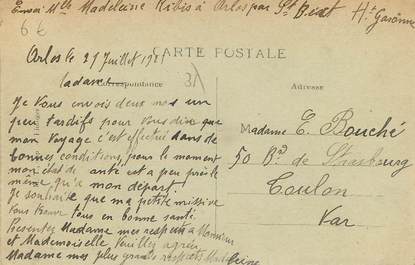 Envoi Mlle Madeleine Ribis à Arlos par St Béat Hte Garonne
6 €
CARTE POSTALE
Arlos le 21 Juillet 1921
Correspondance
31
Adresse
Madame
Je vous envois deux mots un
peu tardifs pour vous dire que
mon voyage c'est effectué dans de
bonnes conditions, pour le moment
mon état de santé est a peu près le
même qu'a mon départ.
Je souhaite que ma petite missive
vous trouve tous en bonne santé.
Presentez Madame mes respects a Monsieur
et Mademoiselle Veuillez agréer
Madame mes plus grands respects Madeleine
Madame E. Bouché
50 Bd de Strasbourg
Toulon
Var